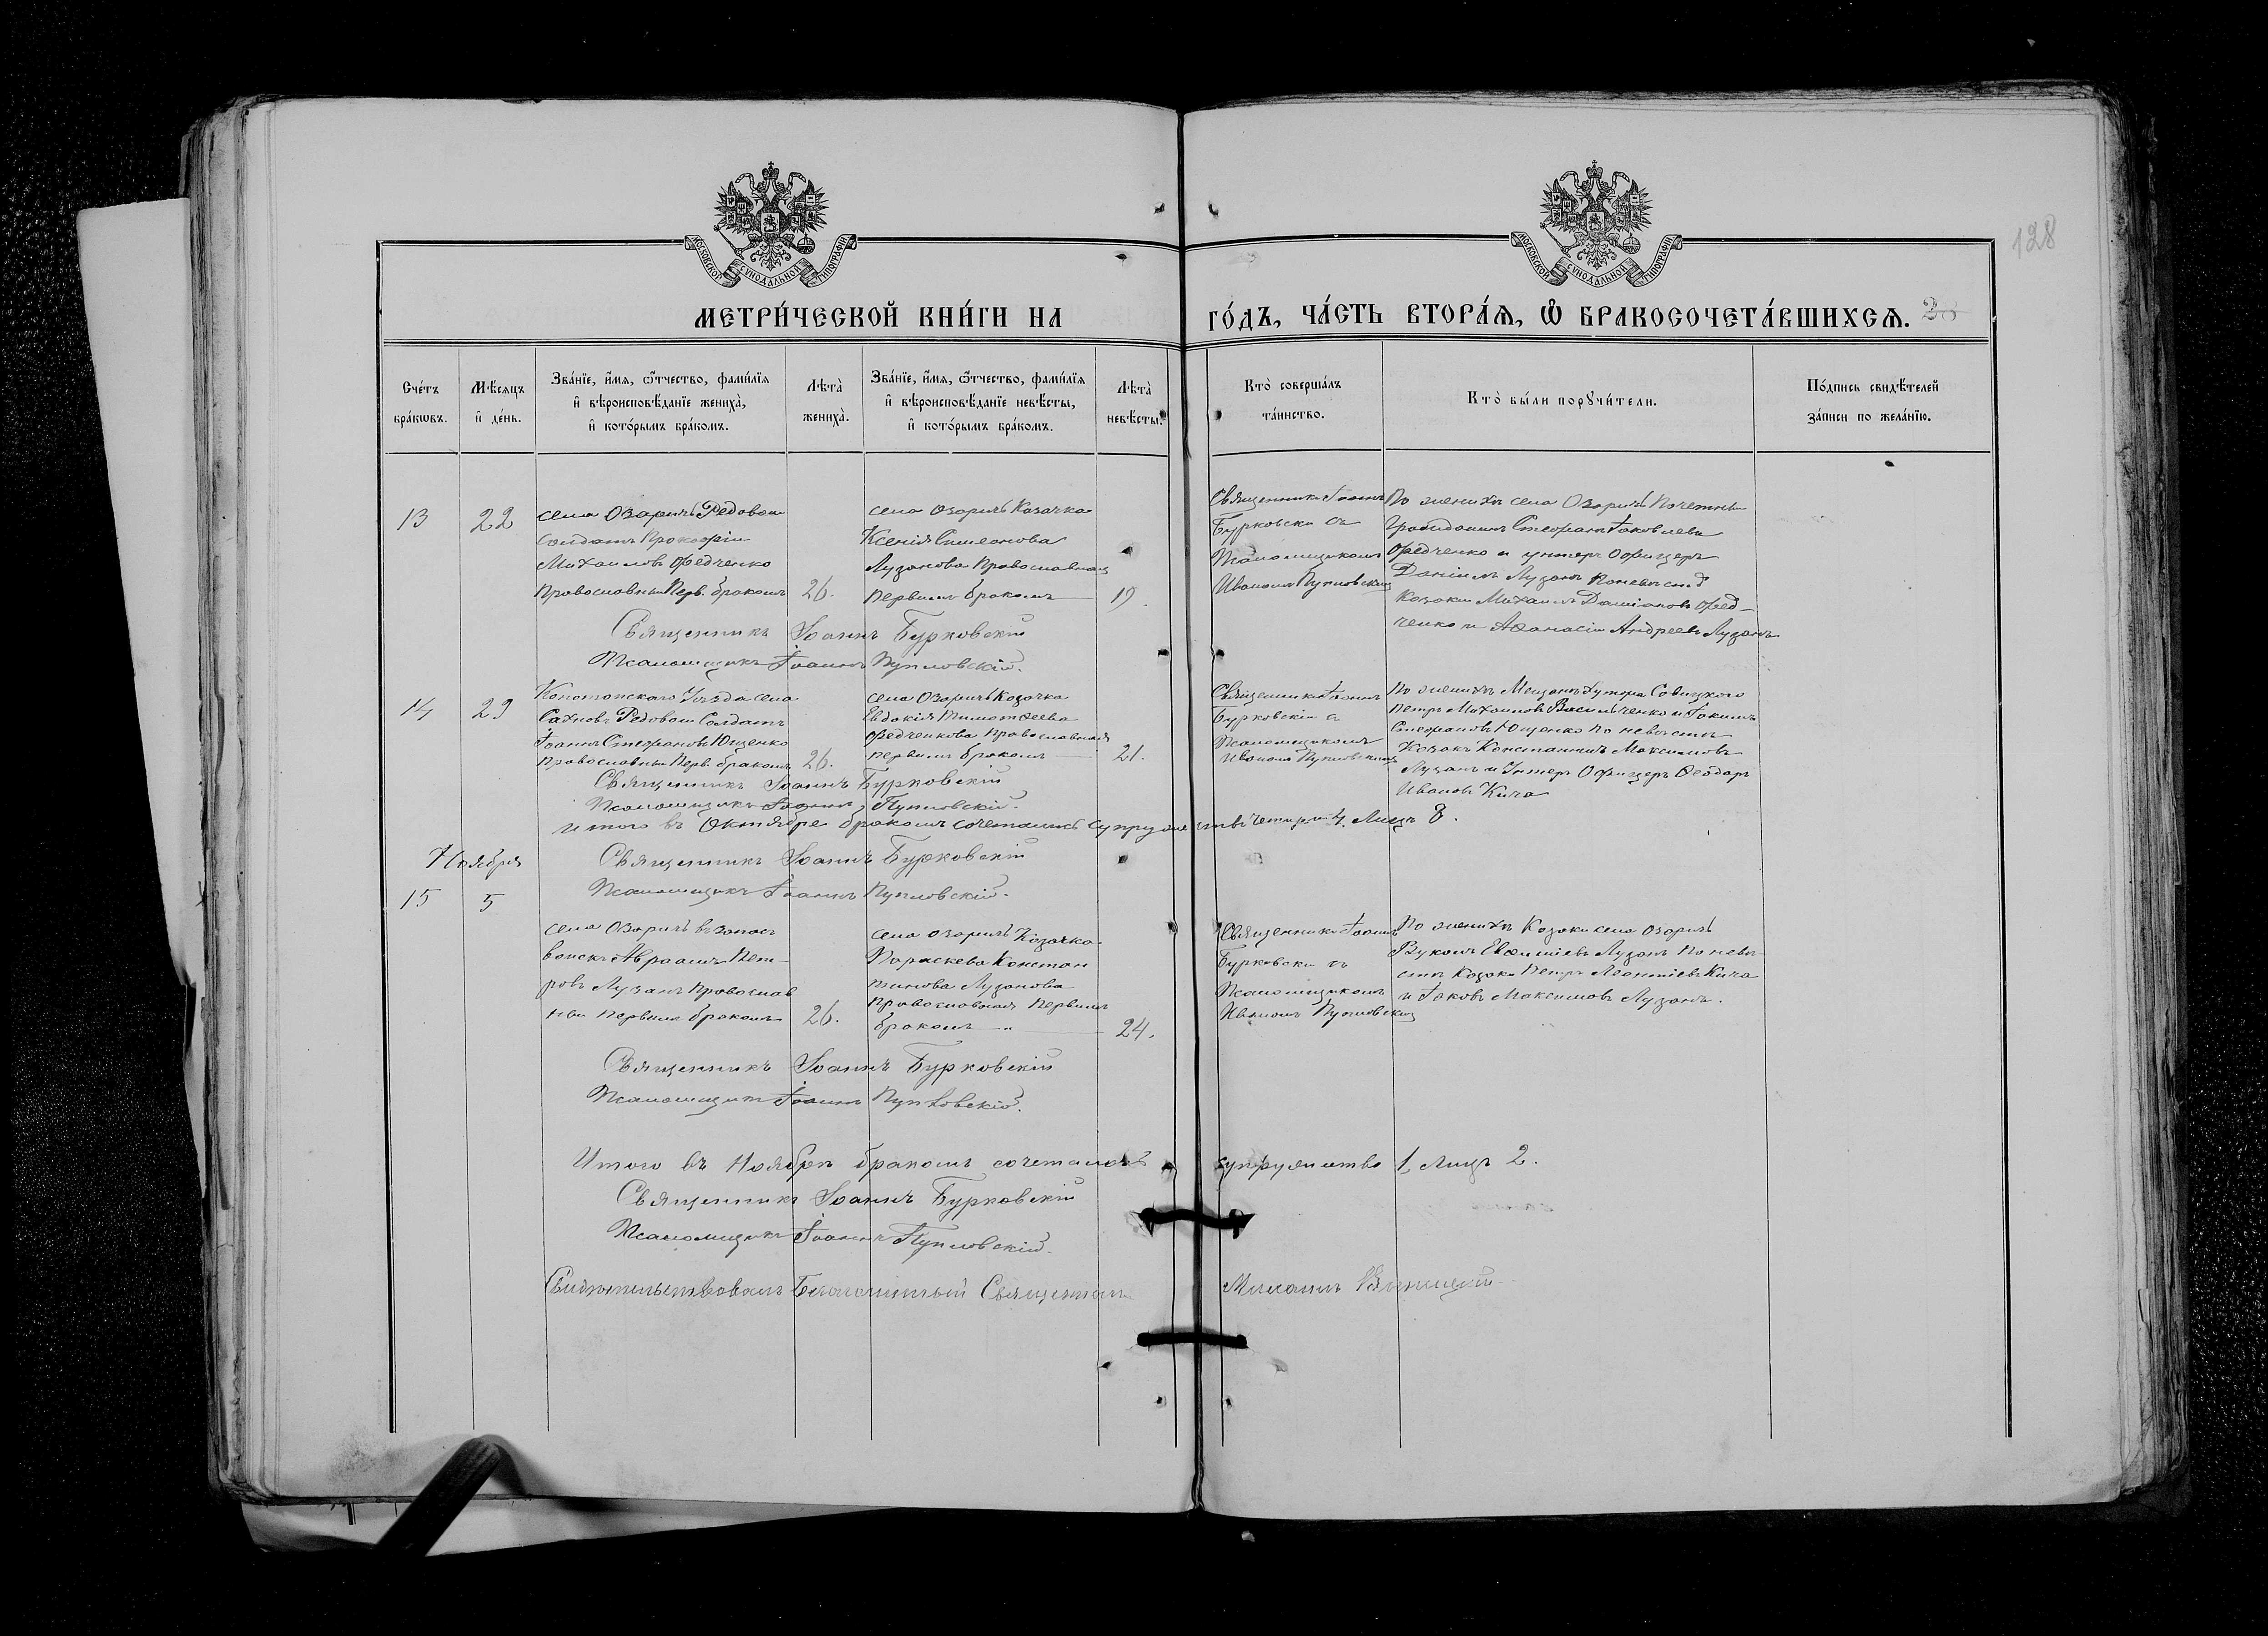 128
МОСКОВСКОЙ СѴНОДАЛЬНОЙ ТИПОГРАФІИ
МОСКОВСКОЙ СѴНОДАЛЬНОЙ ТИПОГРАФІИ
МЕТРИ́ЧЕСКОЙ КНИ́ГИ НА
ГО́ДЪ, ЧА́СТЬ ВТОРА́Я, Ѡ БРАКОСОЧЕТА́ВШИХСЯ.
Сче́тъ бра́кѡвъ.
Мѣ́сяцъ и҆ де́нь.
Зва́нїе, и҆́мя, ѻ҆́тчество, фами́лїя
и҆ вѣроисповѣ́данїе жениха̀,
и҆ кото́рымъ бра́комъ.
Лѣта̀ жениха̀.
Зва́нїе, и҆́мя, ѻ҆́тчество, фами́лїя
и҆ вѣроисповѣ́данїе невѣ́сты,
и҆ кото́рымъ бра́комъ.
Лѣта̀ невѣ́сты.
Кто̀ соверша́лъ
та́инство.
Кто̀ бы́ли порꙋчи́тели.
По́дпись свидѣ́телей
за́писи по жела́нїю.
13
22
села Озаричъ Редовой
Солдатъ Прокофій
Михаиловъ Федченко
Православный Перв. бракомъ
26.
села Озаричъ Козачка
Ксенія Симеонова
Лузанова Православная
первымъ бракомъ
19.
Священникъ Іоаннъ
Бурковскій съ
Псаломщикомъ
Иваномъ Пупловскимъ
По женихѣ села Озаричъ Почетный
Гражданинъ Стефанъ Іаковлевъ
Федченко и унтеръ офицеръ
Даніилъ Лузанъ по невѣстѣ
Козаки Михаилъ Даміановъ Фед-
ченко и Аѳанасій Андреевъ Лузанъ
Священникъ Іоаннъ Бурковскій
Псаломщикъ Іоаннъ Пупловскій.
14
29
Конотопскаго Уѣзда села
Сахновъ Редовой Солдатъ
Іоаннъ Стефановъ Ющенко
православный Перв. бракомъ
26.
села Озаричъ Козачка
Евдокія Тимофеева
Федченкова православная
первымъ бракомъ
21.
Священникъ Іоаннъ
Бурковскій съ
Псаломщикомъ
Иваномъ Пупловскимъ
По женихѣ Мещанъ хутора Савицкого
Петръ Михаиловъ Васильченко и Іакимъ
Стефановъ Ющенко по невѣстѣ
Козакъ Константинъ Максимовъ
Лузанъ и Унтеръ Офицеръ Ѳеодоръ
Ивановъ Кича
Священникъ Іоаннъ Бурковскій
Псаломщикъ Іоаннъ Пупловскій.
Итого въ Октябре бракомъ сочеталось супружествъ четыри 4. Лицъ 8.
Ноября
Священникъ Іоаннъ Бурковскій
15
5
Псаломщикъ Іоаннъ Пупловскій.
села Озаричъ въ запасъ
войскъ Авраамъ Пет-
ровъ Лузанъ православ
ный первымъ бракомъ
26.
села Озаричъ Козачка
Параскева Констан
тинова Лузанова
православная первымъ
бракомъ
24.
Священникъ Іоаннъ
Бурковскій съ
Псаломщикомъ
Иваномъ Пупловскимъ
По женихѣ Козаки села Озаричъ
Вуколъ Евфиміевъ Лузанъ по невѣ
стѣ Козаки Петръ Леонтіевъ Кича
и Іаковъ Максимовъ Лузанъ.
Священникъ Іоаннъ Бурковскій
Псаломщикъ Іоаннъ Пупловскій.
Итого въ Ноябрѣ бракомъ сочеталось супружество 1, Лицъ 2.
Священникъ Іоаннъ Бурковскій
Псаломщикъ Іоаннъ Пупловскій.
Свидѣтельствовалъ Благочинный Священникъ Михаилъ